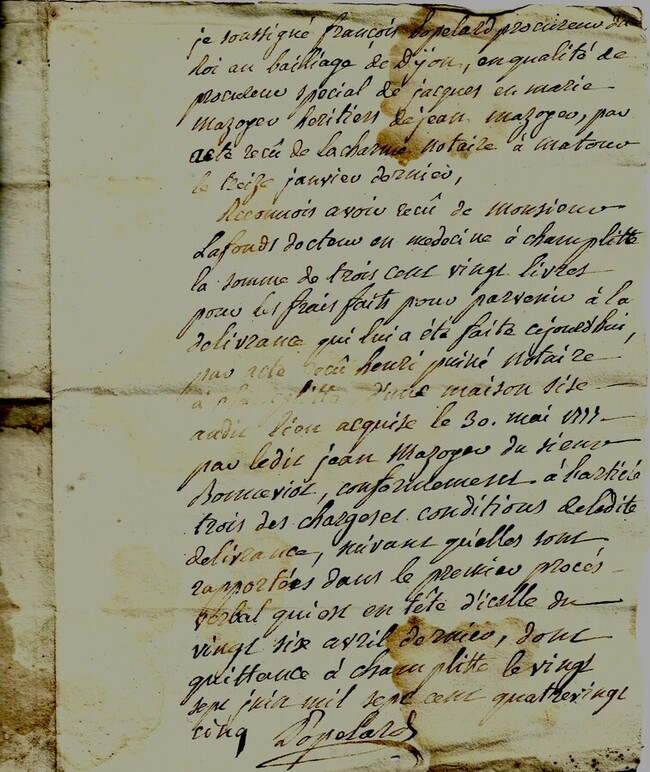 je soussigné françois Popelard procureur du
Roi au bailliage de Dijon, en qualité de
procureur special de jacques en marie
mazoyer heritiers de jean mazoyer, par
acte recû de lacharme notaire à matour
le treize janvier dernier,
Reconnois avoir recû de monsieur
Lafonds docteur en medecine à champlitte
la somme de trois cent vingt livres
pour les frais faits pour parvenir à la
delivrance qui lui a été faite cejourdhui,
par acte recû henri puiné notaire
à champlitte d'une maison sise
audit lieu acquise le 30. mai
par ledit jean mazoyer du sieur
Bonneviot, conformement à l'article
trois des charges et conditions de ladite
delivrance, suivant qu'elles sont
rapportées dans le premier procés
verbal qui est en tête d'icelle du
vingt six avril dernier, dont
quittance à champlitte le vingt
sept juin mil sept cent quatrevingt
cinq Popelard